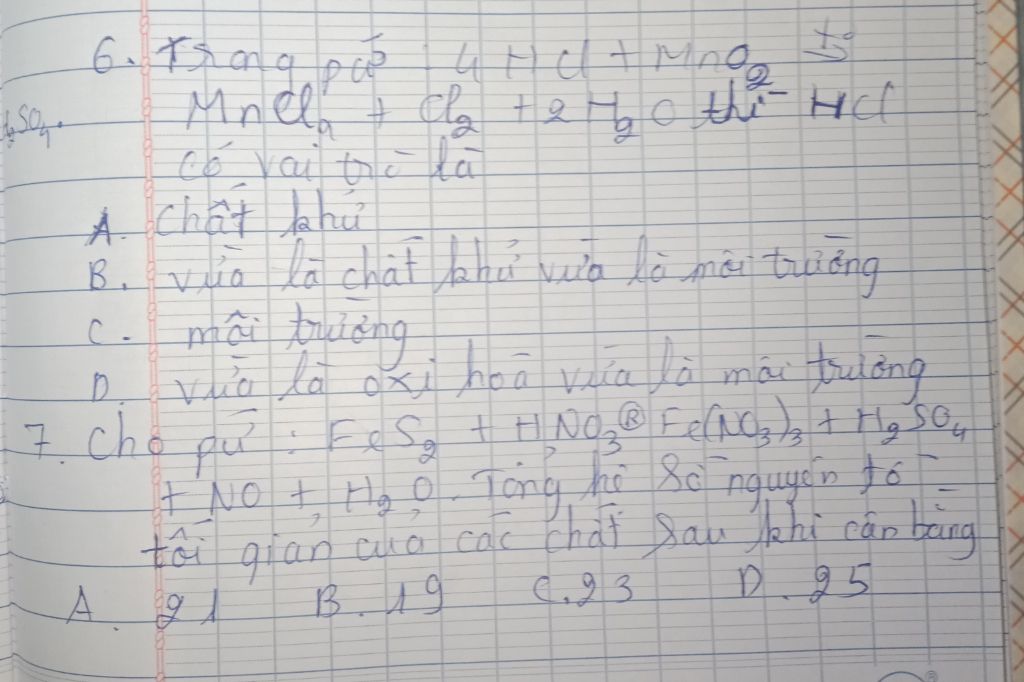 6. Trong pứ 4HCl + MnO2 t°
MnCl2 + Cl2 + 2H2O thì HCl
SO4.
có vai trò là
A. chất khử
B. vừa là chất khử vừa là môi trường
C. môi trường
D. vừa là oxi hoá vừa là môi trường
7. Cho pứ : FeS2 + HNO3 ® Fe(NO3)3 + H2SO4
+ NO + H2O. Tổng hệ số nguyên tố
tối giản của các chất sau khi cân bằng
A. 21 B. 19 C. 23 D. 25